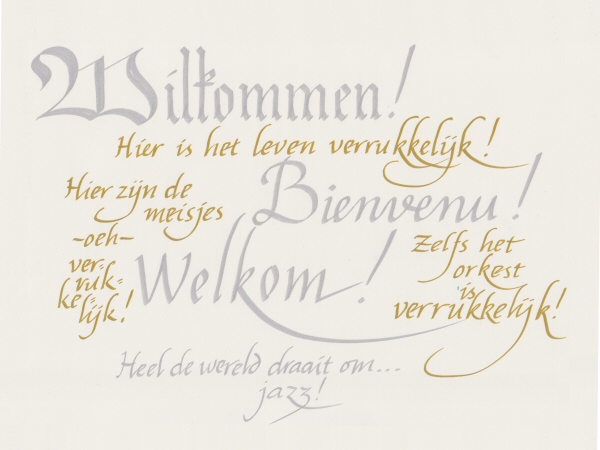 Wilkommen!
Hier is het leven verrukkelijk!
Bienvenu!
Hier zijn de
meisjes
-oeh-
ver-
ruk-
ke-
lijk!
Welkom!
Zelfs het
orkest
is
verrukkelijk!
Heel de wereld draait om...
jazz!